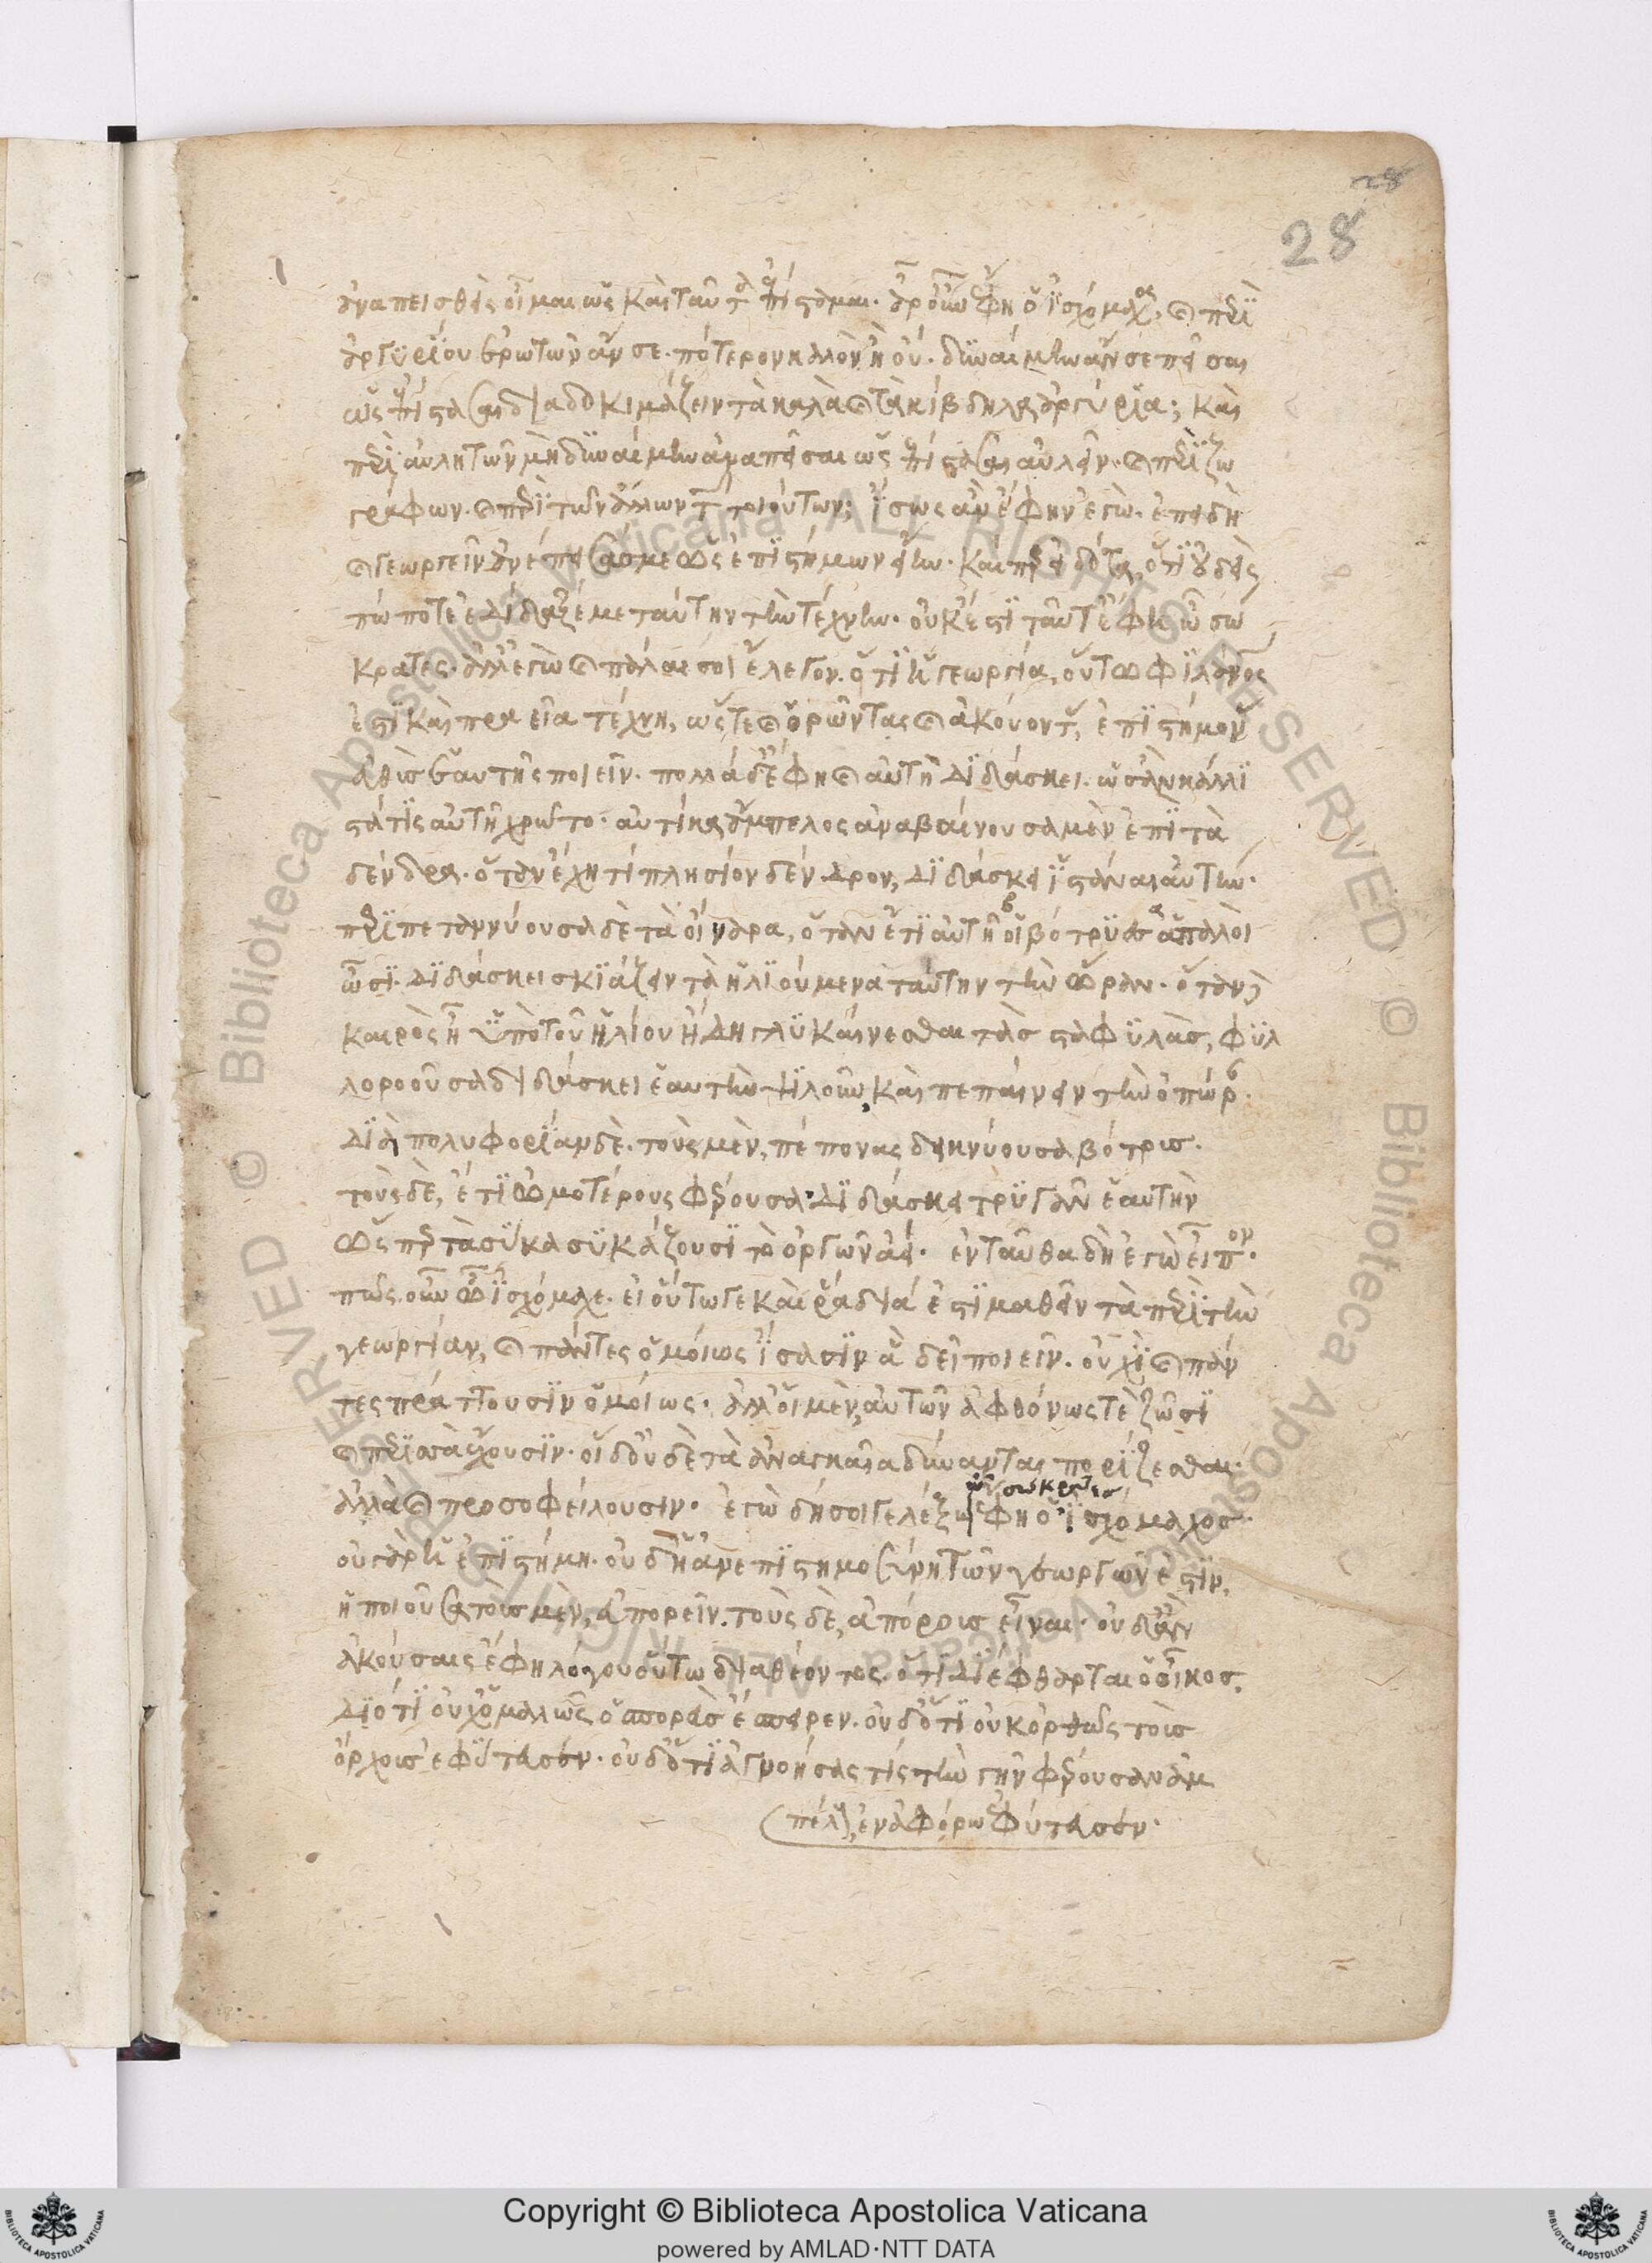 28
28
ἀναπεισθεὶς οἶμαι ὡς καὶ ταῦτα ἐπίσταμαι. ἆρ' οὖν ἔφη ὁ ἰσχόμαχος, καὶ περὶ
ἀργυρίου ἐρωτῶν ἄν σε. πότερον καλὸν ἢ οὔ. δυναίμην ἄν σε πεῖσαι
ὡς ἐπίστασαι διαδοκιμάζειν τὰ καλὰ καὶ τὰ κίβδηλα ἀργύρια; καὶ
περὶ αὐλητῶν μὴ δυναίμην ἀναπεῖσαι ὡς ἐπίστασαι αὐλεῖν. καὶ περὶ ζω
γράφων. καὶ περὶ τῶν ἄλλων τῶν τοιούτων; ἴσως ἂν ἔφην ἐγώ. ἐπειδὴ
καὶ γεωργεῖν ἀνέπεισάς με ὡς ἐπιστήμων εἴην. καίπερ εἰδότα, ὅτι οὐδεὶς
πώποτε ἐδίδαξέ με ταύτην τὴν τέχνην. οὐκ ἔστι ταῦτ' ἔφη ὦ σώ
κρατες. ἀλλ' ἐγὼ καὶ πάλαι σοι ἔλεγον. ὅτι ἡ γεωργία, οὕτω φιλάνος
ἐστὶ καὶ πραεῖα τέχνη, ὥστε καὶ ὁρῶντας καὶ ἀκούοντας, ἐπιστήμονας
εὐθὺς ἑαυτῆς ποιεῖν. πολλὰ δ' ἔφη καὶ αὐτὴ διδάσκει. ὡς ἂν κάλλι
στά τις αὐτῇ χρῷτο. αὐτίκα ἄμπελος ἀναβαίνουσα μὲν ἐπὶ τὰ
δένδρα. ὅταν ἔχῃ τι πλησίον δένδρον, διδάσκει ἱστάναι αὐτήν.
περιπεταννύουσα δὲ τὰ οἴναρα, ὅταν ἔτι αὐτῇ οἱ βότρυες ἁπαλοὶ
ὦσι. διδάσκει σκιάζειν τὰ ἡλιούμενα ταύτην τὴν ὥραν. ὅταν δὲ
καιρὸς ᾖ ὑπὸ τοῦ ἡλίου ἤδη γλυκαίνεσθαι τὰς σταφυλάς, φυλ
λοροοῦσα διδάσκει ἑαυτὴν ψιλοῦν, καὶ πεπαίνειν τὴν ὀπώραν.
διὰ πολυφορίαν δὲ. τοὺς μὲν, πέπονας δεικνύουσα βότρυς.
τοὺς δὲ, ἔτι ὠμοτέρους φέρουσα. διδάσκει τρυγᾶν ἑαυτὴν
ὥσπερ τὰ σῦκα συκάζουσι τὸ ὀργῶν ἀεί. ἐνταῦθα δὴ ἐγὼ εἶπον.
πῶς οὖν ὦ ἰσχόμαχε. εἰ οὕτω γε καὶ ῥάδιά ἐστι μαθεῖν τὰ περὶ τὴν
γεωργίαν, καὶ πάντες ὁμοίως ἴσασιν ἃ δεῖ ποιεῖν. οὐχὶ καὶ πάν
τες πράττουσιν ὁμοίως. ἀλλ' οἱ μὲν, αὐτῶν ἀφθόνως τε ζῶσι
καὶ περισσὰ ἔχουσιν. οἱ δ' οὐδὲ τὰ ἀναγκαῖα δύνανται πορίζεσθαι.
ἀλλὰ καὶ προσοφείλουσιν. ἐγὼ δή σοι γε λέξω ὦ σώκρατες ἔφη ὁ ἰσχόμαχος.
οὐ γὰρ ἡ ἐπιστήμη. οὐδ' ἡ ἀνεπιστημοσύνη τῶν γεωργῶν ἐστιν,
ἡ ποιοῦσα τοὺς μὲν, εὐπορεῖν. τοὺς δὲ, ἀπόρους εἶναι. οὐδ' ἂν
ἀκούσαις ἔφη λόγου οὕτω διαθέοντος. ὅτι διέφθαρται ὁ οἶκος,
διότι οὐχ ὁμαλῶς ὁ σπορεὺς ἔσπειρεν. οὐδ' ὅτι οὐκ ὀρθῶς τοὺς
ὄρχους ἐφύτευσεν. οὐδ' ὅτι ἀγνοήσας τις τὴν γῆν φέρουσαν ἀμ
πέλους, ἐν ἀφόρῳ ἐφύτευσεν.
Copyright © Biblioteca Apostolica Vaticana
powered by AMLAD·NTT DATA